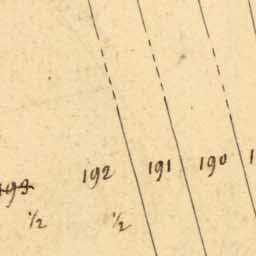 193 192 191 190 1
½ ½